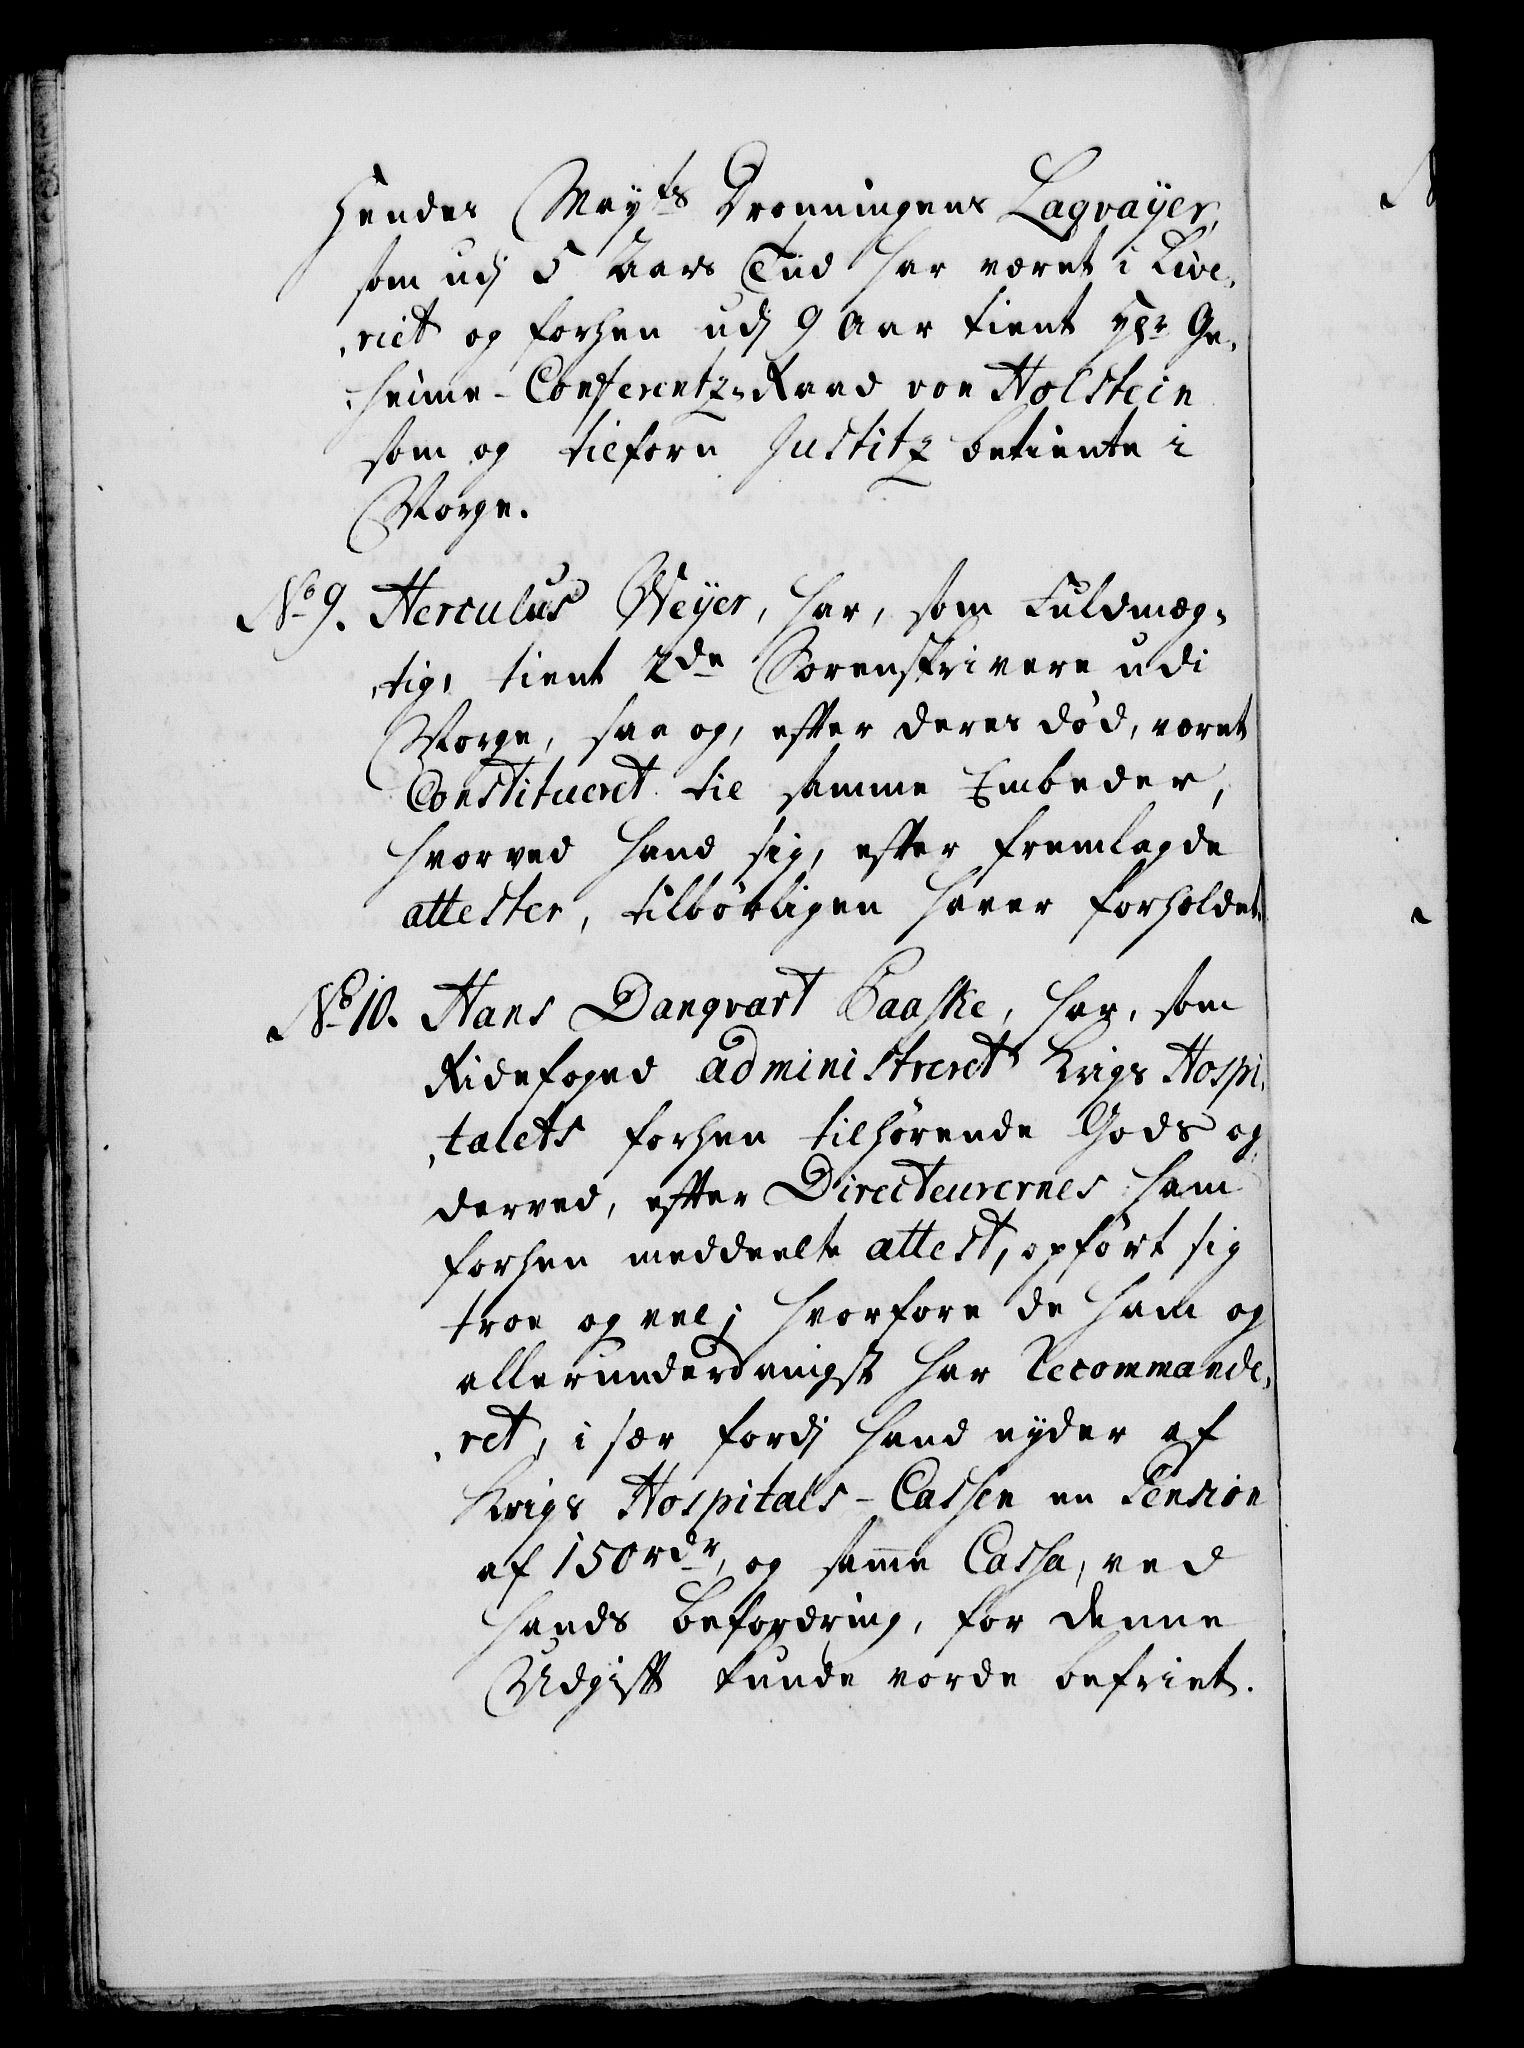 Hendes Mayts Dronningens Laqvayer,
som udj 5 Aars Tiid har været i Live,
,riet og forhen udj 9 Aar tient Hr. Ge,
,heime-Conferentz-Raad von Holstein
som og tilforn Justitz betiente i
Norge.
No 9. Herculus Weyer, har, som Fuldmæg,
,tig, tient 2de Sorenskrivere udi
Norge, saa og, efter deres død, været
Constitueret til samme Embeder,
hvorved hand sig, efter fremlagde
attester, tilbørligen haver forholdet.
No 10. Hans Danqvart Paaske, har, som
Ridefoged administreret Krigs Hospi,
,talets forhen tilhørende Gods og
derved, efter Directeurernes ham
forhen meddeelte attest, opført sig
troe og vel; hvorfore de ham og
allerunderdanigst har Recommande,
,ret, i sær fordj hand nyder af
Krigs Hospitals-Cassen en Pension
af 150 rdr, og samme Cassa, ved
hands befordring, for denne
Udgift kunde vorde befriet.